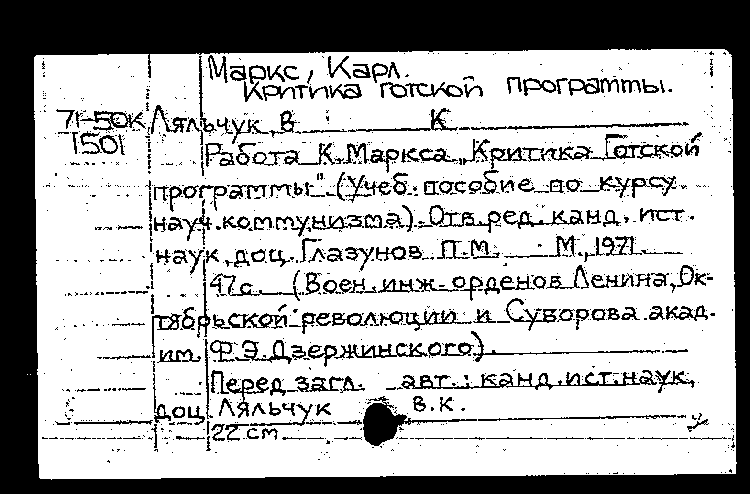 Маркс, Карл.
Критика готской программы.
71-50К Ляльчук, В К
1501
Работа К.Маркса „Критика Готской
программы". (Учеб. пособие по курсу
науч. коммунизма). Отв. ред. канд. ист.
наук, доц. Глазунов П.М. М., 1971.
47с. (Воен. инж. орденов Ленина, Ок-
тябрьской революции и Суворова акад.
им. Ф.Э.Дзержинского).
Перед загл. авт.: канд. ист. наук,
доц Ляльчук В.К.
22 см